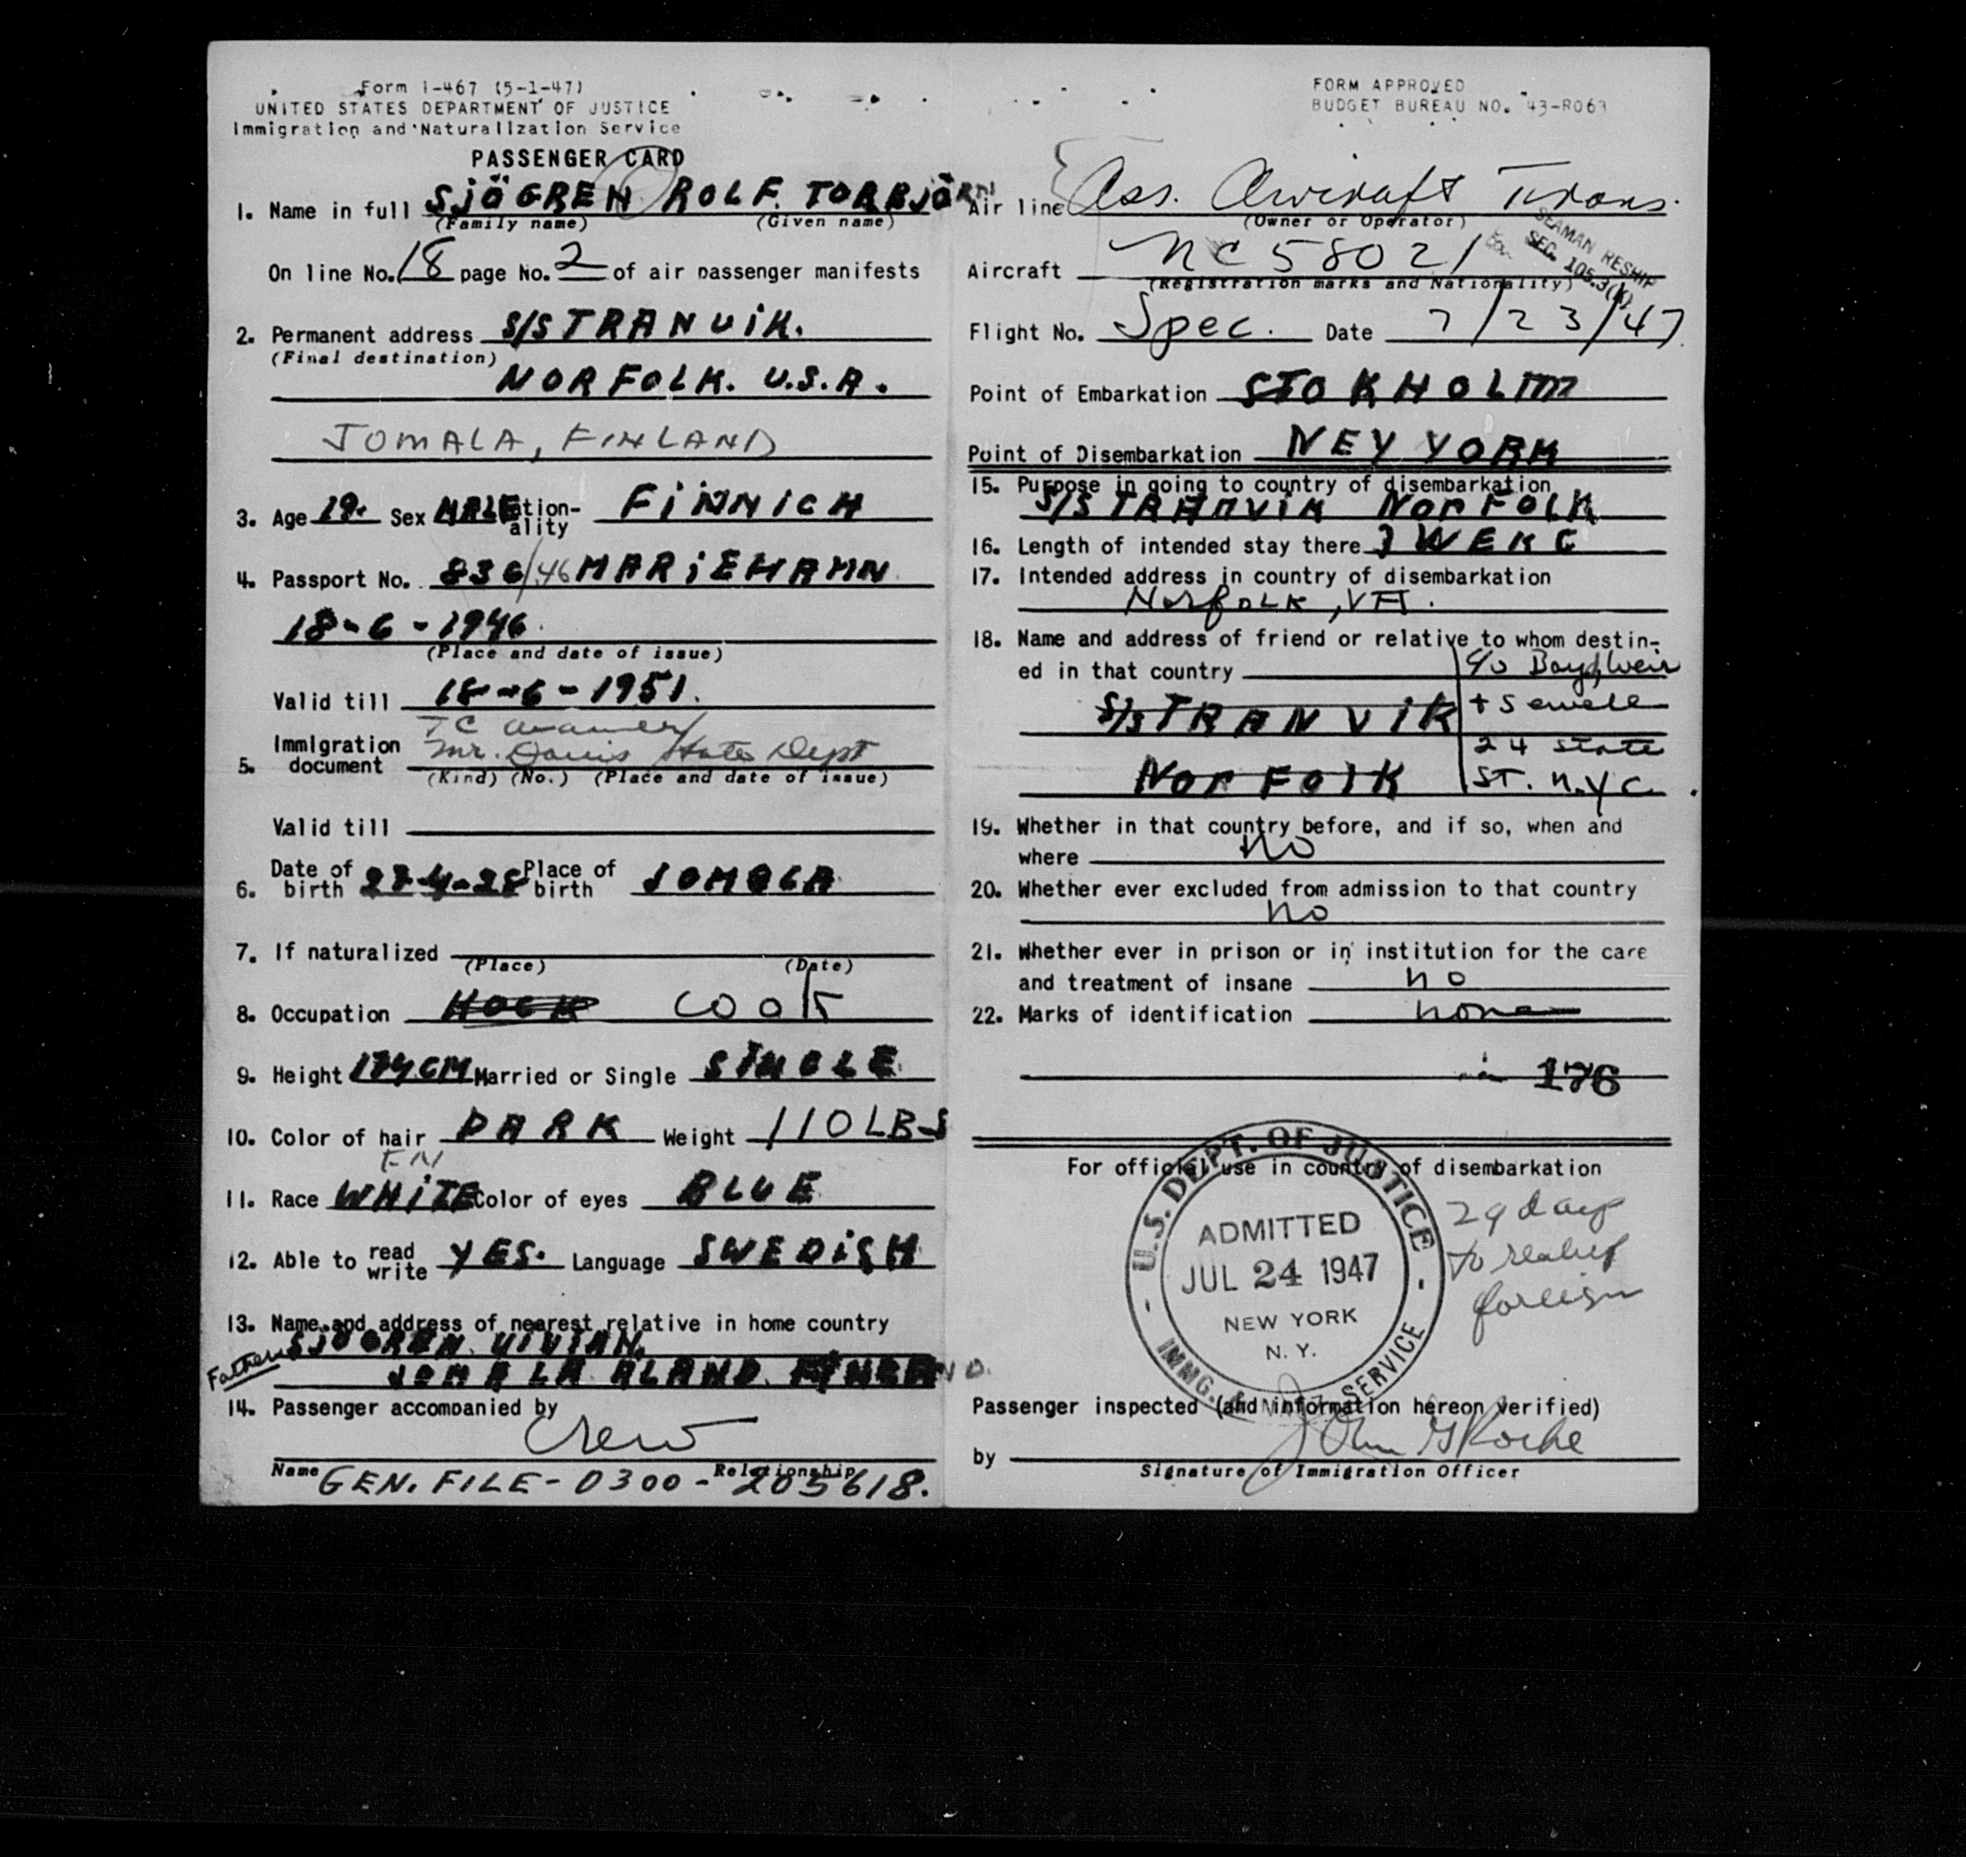 Form I-467 (5-1-47)
UNITED STATES DEPARTMENT OF JUSTICE
Immigration and Naturalization Service
PASSENGER CARD
1. Name in full SJÖGREN ROLF. TORBJÖRN
(Family name) (Given name)
On line No. 18 page No. 2 of air passenger manifests
2. Permanent address S/S TRANVIK.
(Final destination)
NORFOLK. U.S.A.
JOMALA, FINLAND
3. Age 19. Sex MALE Nationality FINNICH
4. Passport No. 836/46 MARIEHAMN
18-6-1946.
(Place and date of issue)
Valid till 18-6-1951.
5. Immigration document
Mr. Davis State Dept
(Kind) (No.) (Place and date of issue)
Valid till
6. Date of birth 27-4-28 Place of birth JOMALA
7. If naturalized
(Place) (Date)
8. Occupation COOK
9. Height 174 CM Married or Single SINGLE
10. Color of hair DARK Weight 110 LBS
11. Race WHITE Color of eyes BLUE
12. Able to read write YES. Language SWEDISH
13. Name and address of nearest relative in home country
Father SJÖGREN VIVIAN.
JOMALA ALAND FINLAND.
14. Passenger accompanied by
Crew
Name Relationship
GEN. FILE-0300-205618.
FORM APPROVED
BUDGET BUREAU NO. 43-R063
Air line Ass. Aircraft Trans.
(Owner or Operator)
SEAMAN RESHIP
SEC. 105.3(b)
Aircraft NC 58021
(Registration marks and Nationality)
Flight No. Spec. Date 7/23/47
Point of Embarkation STOKHOLM
Point of Disembarkation NEY YORK
15. Purpose in going to country of disembarkation
S/S TRANVIK NORFOLK
16. Length of intended stay there WEKC
17. Intended address in country of disembarkation
NORFOLK, VA.
18. Name and address of friend or relative to whom destined in that country
c/o Boyd, Weir
S/S TRANVIK + Sewell
24 State
NORFOLK ST. N.Y.C.
19. Whether in that country before, and if so, when and
where No
20. Whether ever excluded from admission to that country
No
21. Whether ever in prison or in institution for the care
and treatment of insane no
22. Marks of identification none
176
For official use in country of disembarkation
U.S. DEPT. OF JUSTICE
ADMITTED
JUL 24 1947
NEW YORK
N. Y.
IMMG. SERVICE
29 days
to reship
foreign
Passenger inspected (and information hereon verified)
by John
Signature of Immigration Officer